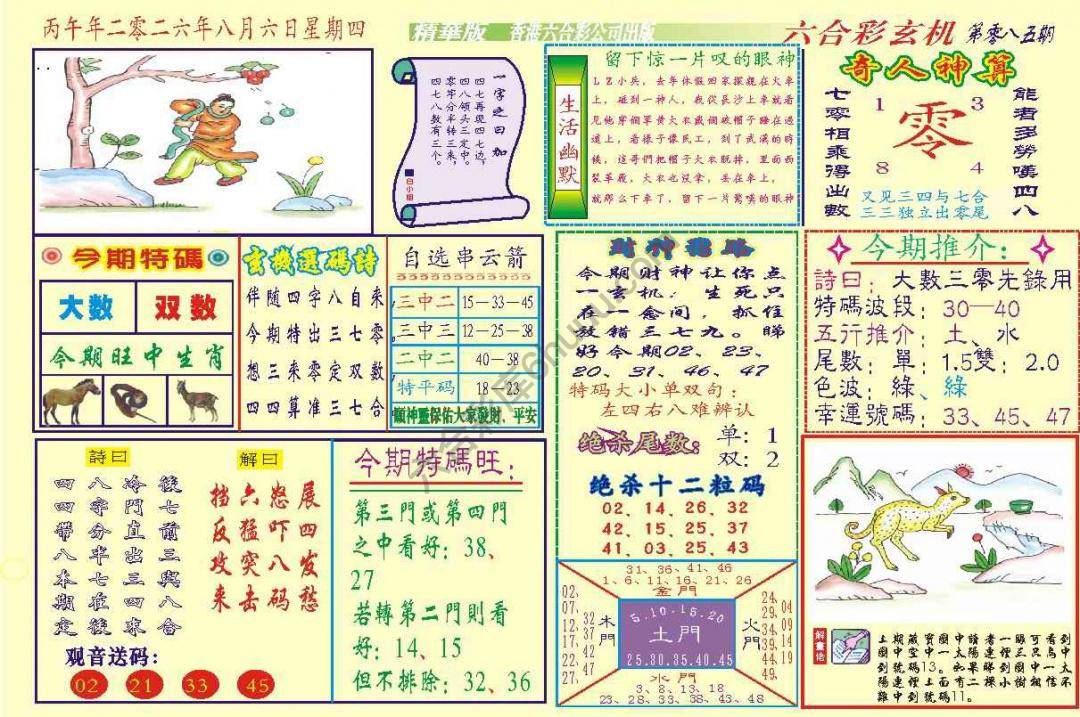 丙午年二零二六年八月六日星期四
精華版 香港六合彩公司出版
六合彩玄机 第零八五期
一字之曰加
四七再现四七边,
四八领头三定中。
零牢分半转三来,
四七八数有三个。
白小姐
生活幽默
留下惊一片叹的眼神
LZ小兵,去年休假回家探親在火车
上,碰到一神人,我從長沙上車就看
见他穿個軍黄大衣戴個破帽子睡在過
道上,看樣子像民工,到了武漢的時
候,這哥們把帽子大衣脱掉,里面西
装革履,大衣也没拿,丢在車上,
就那么下車了,留下一片驚嘆的眼神
奇人神算
七零相乘得出數
能者多勞嘆四八
1 3
零
8 4
又见三四与七合
三三独立出零尾
今期特碼
大数 双数
今期旺中生肖
玄機選碼詩
伴随四字八自来
今期特出三七零
想三来零定双数
四四算准三七合
自选串云箭
三中二 15—33—45
三中三 12—25—38
二中二 40—38
特平码 18—23
願神靈保佑大家發財、平安
财神指路
今期财神让你点
一玄机:生死只
在一念间,抓住
放错三七九。睇
好今期02、23、
20、31、46、47
特码大小单双句:
左四右八难辨认
绝杀尾数: 单:1
双:2
绝杀十二粒码
02、14、26、32
42、15、25、37
41、03、25、43
今期推介:
詩曰:大數三零先錄用
特碼波段:30—40
五行推介:土、水
尾數:單:1.5雙:2.0
色波:綠、綠
幸運號碼:33、45、47
詩曰
四八冷後
四字門七
帶分直前
八半出三
本七三與
期在四八
定後來合
解曰
挡六怒展
反猛吓四
攻突八发
来击码愁
观音送码:
02 21 33 45
今期特碼旺:
第三門或第四門
之中看好:38、
27
若轉第二門則看
好:14、15
但不排除:32、36
31、36、41、46
1、6、11、16、21、26
金門
02、07、12、17、22、27、
32、37、42、47
木門
5.10.15.20
土門
25.30.35.40.45
火門
24、29、34、39、44、49、
04、09、14、19
水門
3、8、13、18
23、28、33、38、43、48
解畫佬
上期藏寶圖中讀者一眼可看到
圖中空中一太陽連經三只鸟中
到號碼13。如果睇到圖中一太
陽連經上面有二棵小樹相信不
難中到號码11。
六合彩库6huuu.com